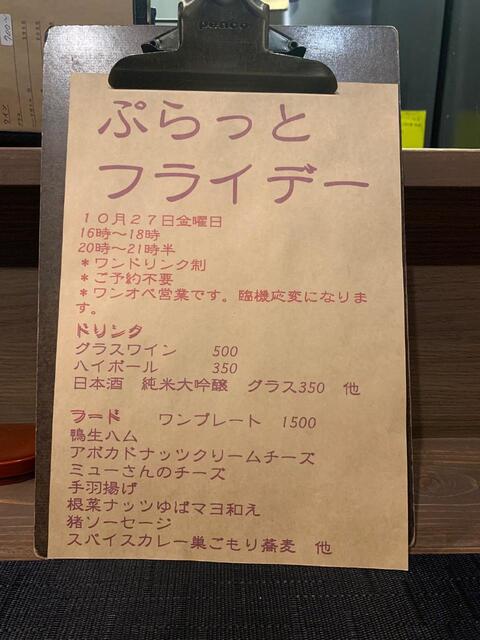 penco
ぷらっと
フライデー
10月27日金曜日
16時～18時
20時～21時半
*ワンドリンク制
*ご予約不要
*ワンオペ営業です。臨機応変になりま
す。
ドリンク
グラスワイン 500
ハイボール 350
日本酒 純米大吟醸 グラス350 他
フード ワンプレート 1500
鴨生ハム
アボカドナッツクリームチーズ
ミューさんのチーズ
手羽揚げ
根菜ナッツゆばマヨ和え
猪ソーセージ
スパイスカレー巣ごもり蕎麦 他